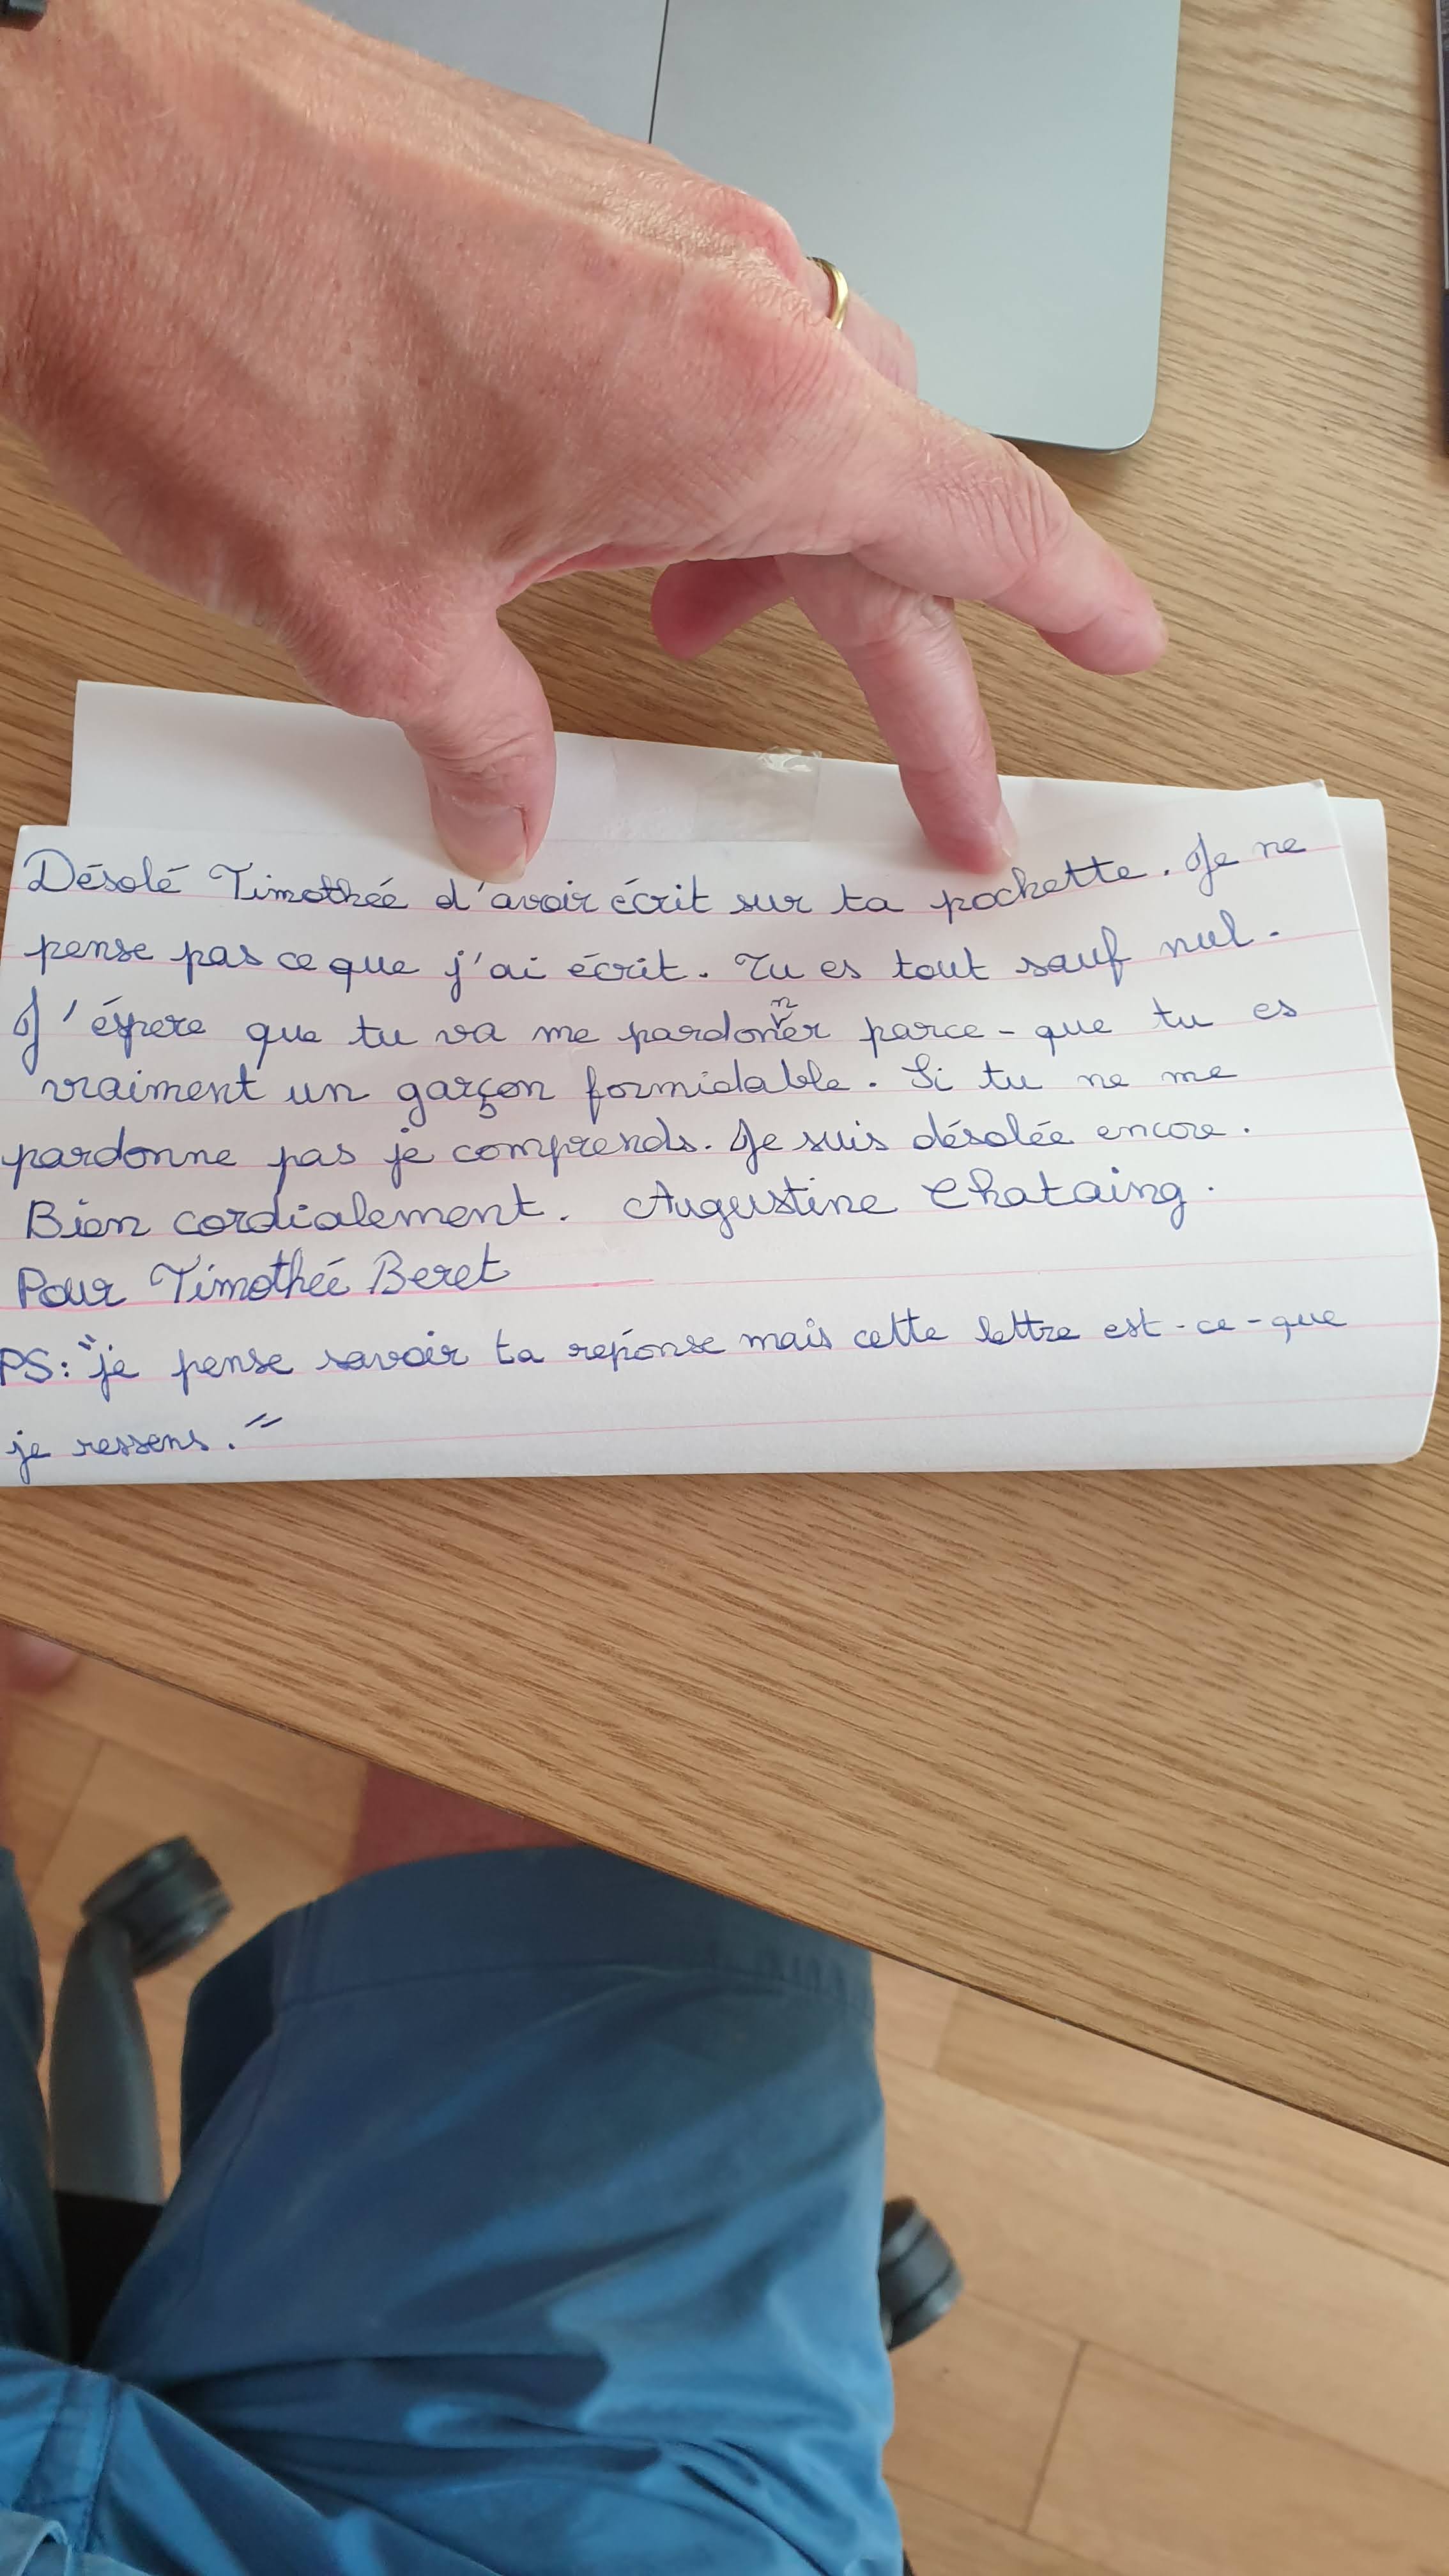 Désolé Timothée d'avoir écrit sur ta pochette. Je ne
pense pas ce que j'ai écrit. Tu es tout sauf nul.
J'éspere que tu va me pardonner parce-que tu es
vraiment un garçon formidable. Si tu ne me
pardonne pas je comprends. Je suis désolée encore.
Bien cordialement. Augustine Chataing.
Pour Timothée Beret
PS: "je pense savoir ta réponse mais cette lettre est-ce-que
je ressens."